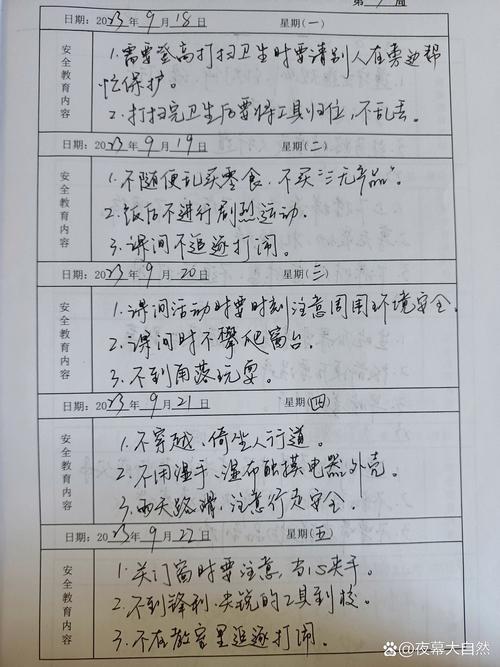 第 周
日期: 2023年9月18日 星期(一)
安全教育内容
1.需要登高打扫卫生时要请别人在旁边帮
忙保护。
2.打扫完卫生后要将工具归位,不乱丢。
日期: 2023年9月19日 星期(二)
安全教育内容
1.不随便乱买零食,不买“三无产品”。
2.饭后不进行剧烈运动。
3.课间不追逐打闹。
日期: 2023年9月20日 星期(三)
安全教育内容
1.课间活动时要时刻注意周围环境安全。
2.课间时不攀爬窗台。
3.不到角落玩耍。
日期: 2023年9月21日 星期(四)
安全教育内容
1.不穿越、倚坐人行道。
2.不用湿手、湿布触摸电器外壳。
3.雨天路滑,注意行走安全。
日期: 2023年9月22日 星期(五)
安全教育内容
1.关门窗时要注意,当心夹手。
2.不到锋利、尖锐的工具到校。
3.不在教室里追逐打闹。
@夜幕大自然